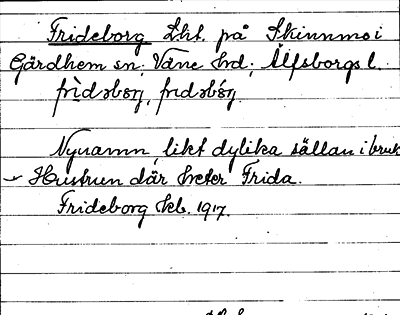 Frideborg Lht. på Skinnmo i
Gärdhem sn; Väne hrd; Älfsborgs l.
frìdəbɷrj, frɪdəbɷ́rj.
Nynamn, likt dylika sällan i bruk
Hustrun där heter Frida.
Frideborg skb. 1917.